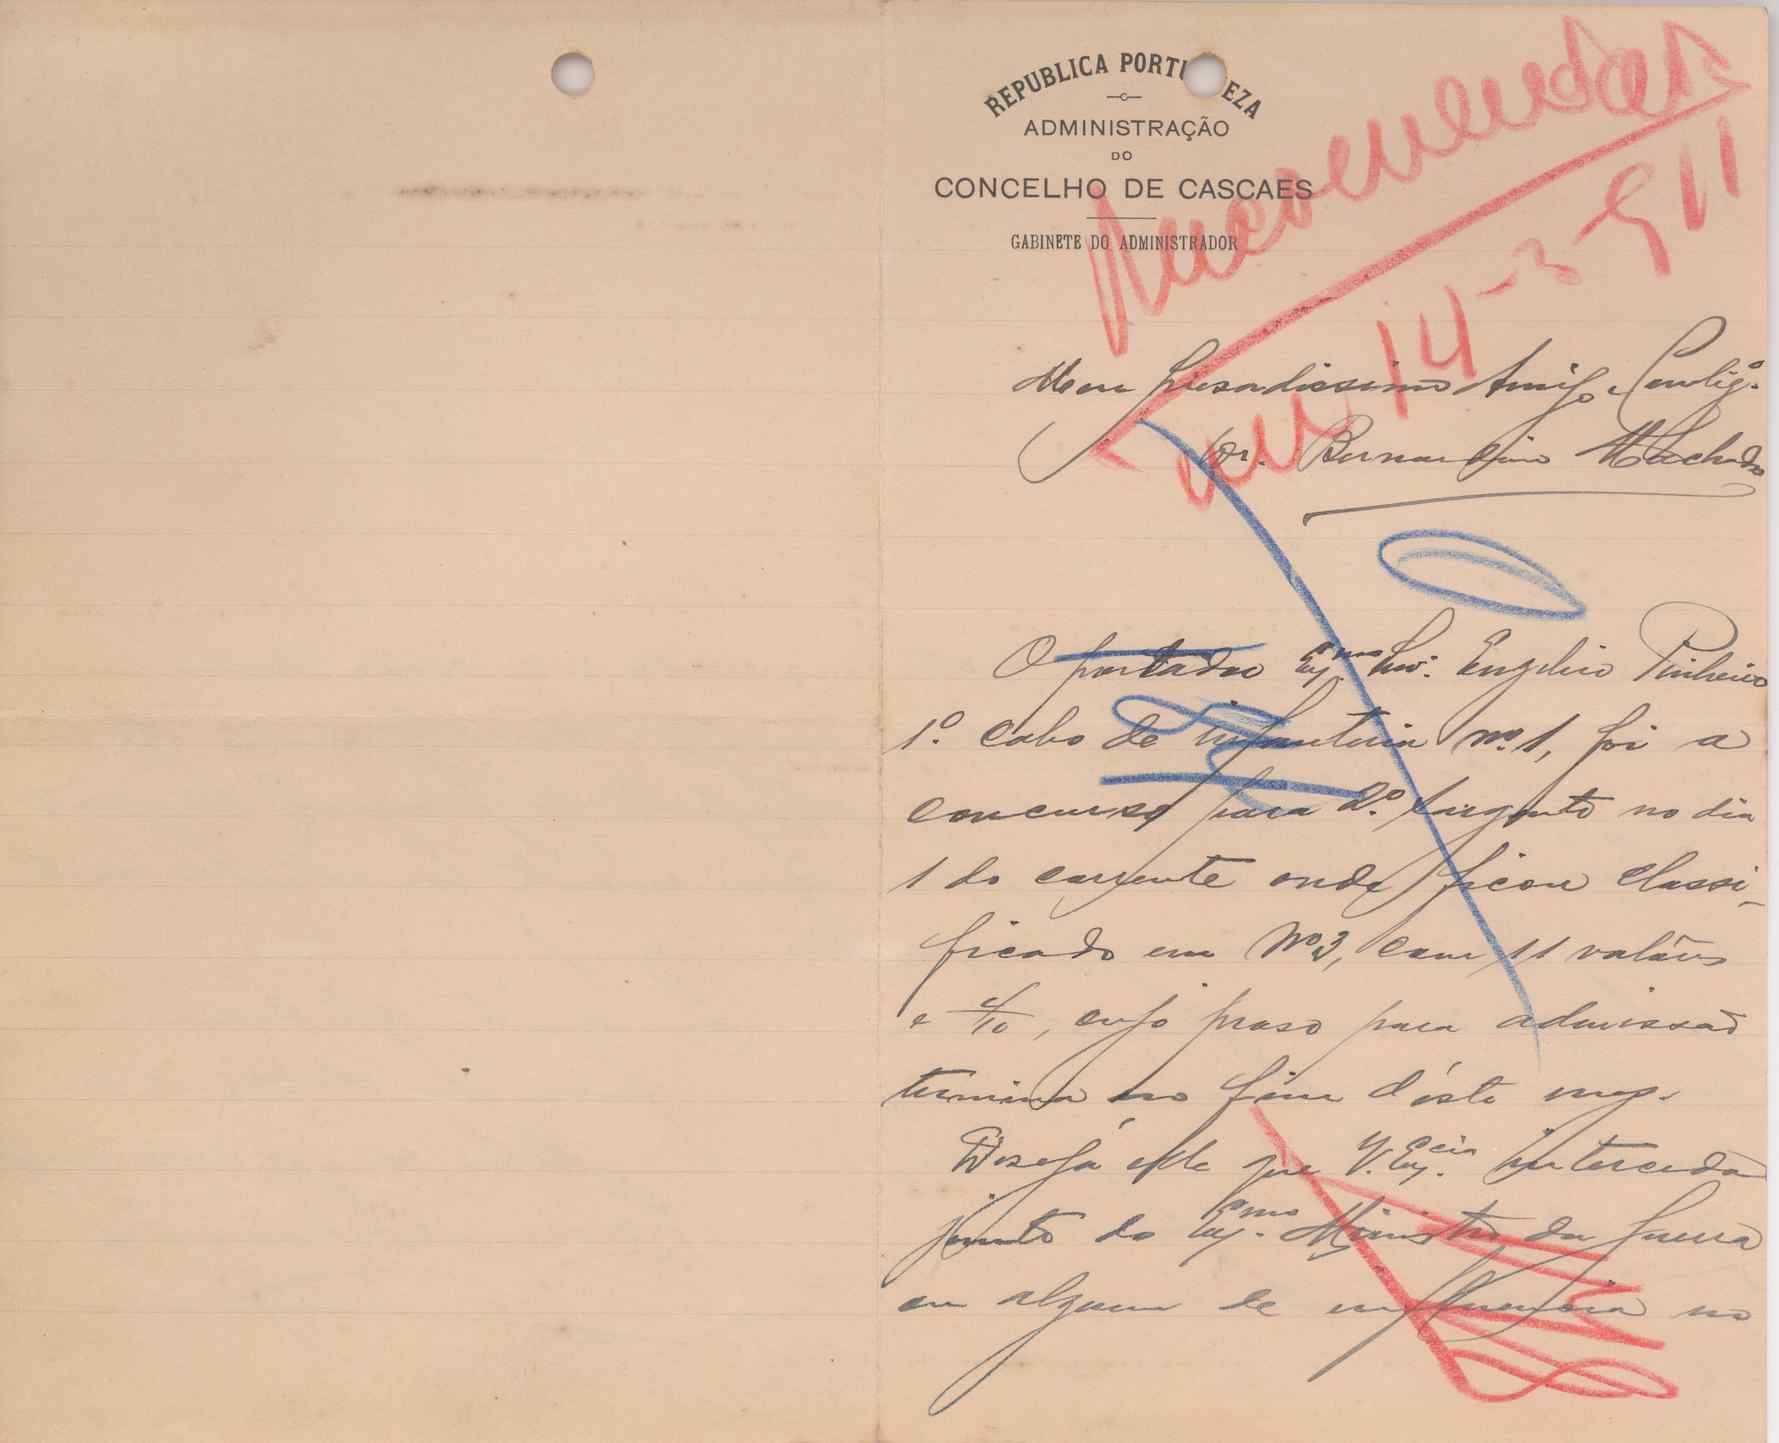 REPUBLICA PORTUGUEZA
ADMINISTRAÇÃO
DO
CONCELHO DE CASCAES
GABINETE DO ADMINISTRADOR
Recomendado
em 14-3-911
Meu presadissimo Amigo e Corrligº.
Dr. Bernardino Machado
O portador Exmo Snr. Eugenio Pinheiro
1º. cabo de infanteria nº. 1, foi a
concurso para 2º. sargento no dia
1 do corrente onde ficou classi-
ficado em Nº 3, com 11 valôres
e /10, cujo praso para admissão
termina no fim d'éste mez.
Deseja elle que V. Excia. interceda
junto do Exmo. Ministro da Guerra
ou alguem de influencia no